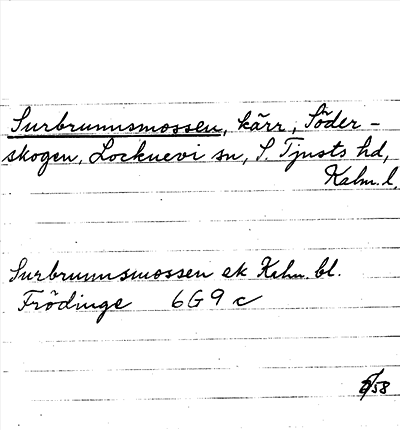 Surbrunnsmossen, kärr, Söder-
skogen, Locknevi sn, S. Tjusts hd,
Kalm. l.
Surbrunnsmossen ek Kalm. bl.
Frödinge 6G9c
/58